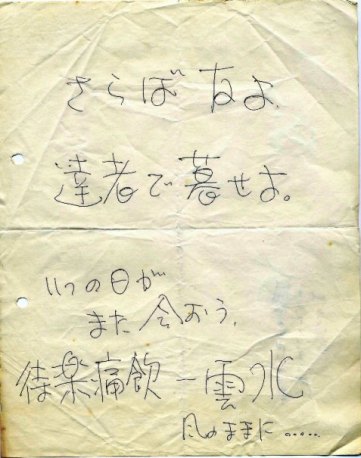 さらば友よ.
達者で暮せよ。
いつの日か
また会おう.
待楽痛飲 一雲水
風のままに.....